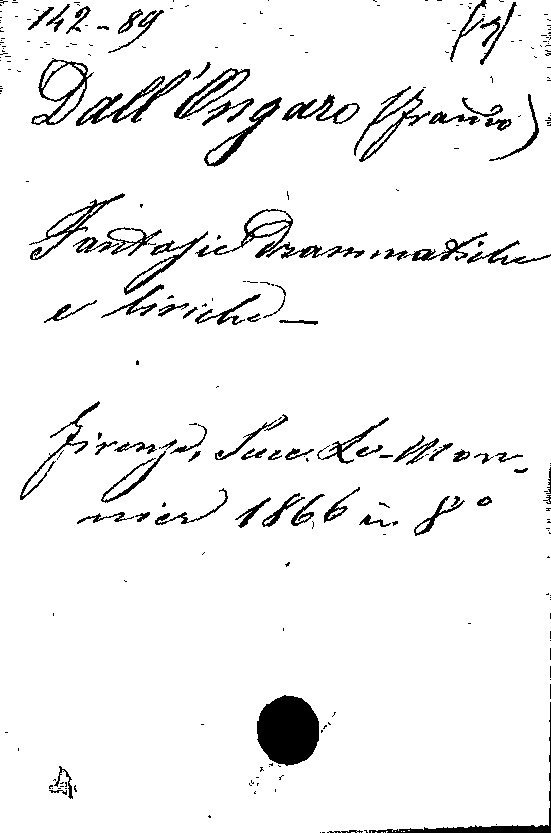 142-89 (7)
Dall'Ongaro (Franco)
Fantasie Drammatiche
e liriche -
Firenze, Succ. Le-Mon-
nier 1866 in 8º